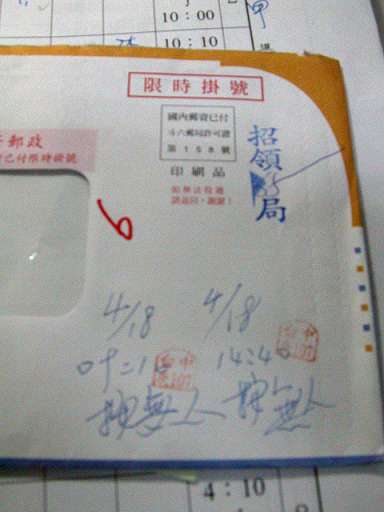 10:00
10:10
限時掛號
國內郵資已付
斗六郵局許可證
第158號
印刷品
如無法投遞
請退回,謝謝!
招領
局
郵政
已付限時掛號
6
4/18
4/18
14:40
按無人
按無人
4:10